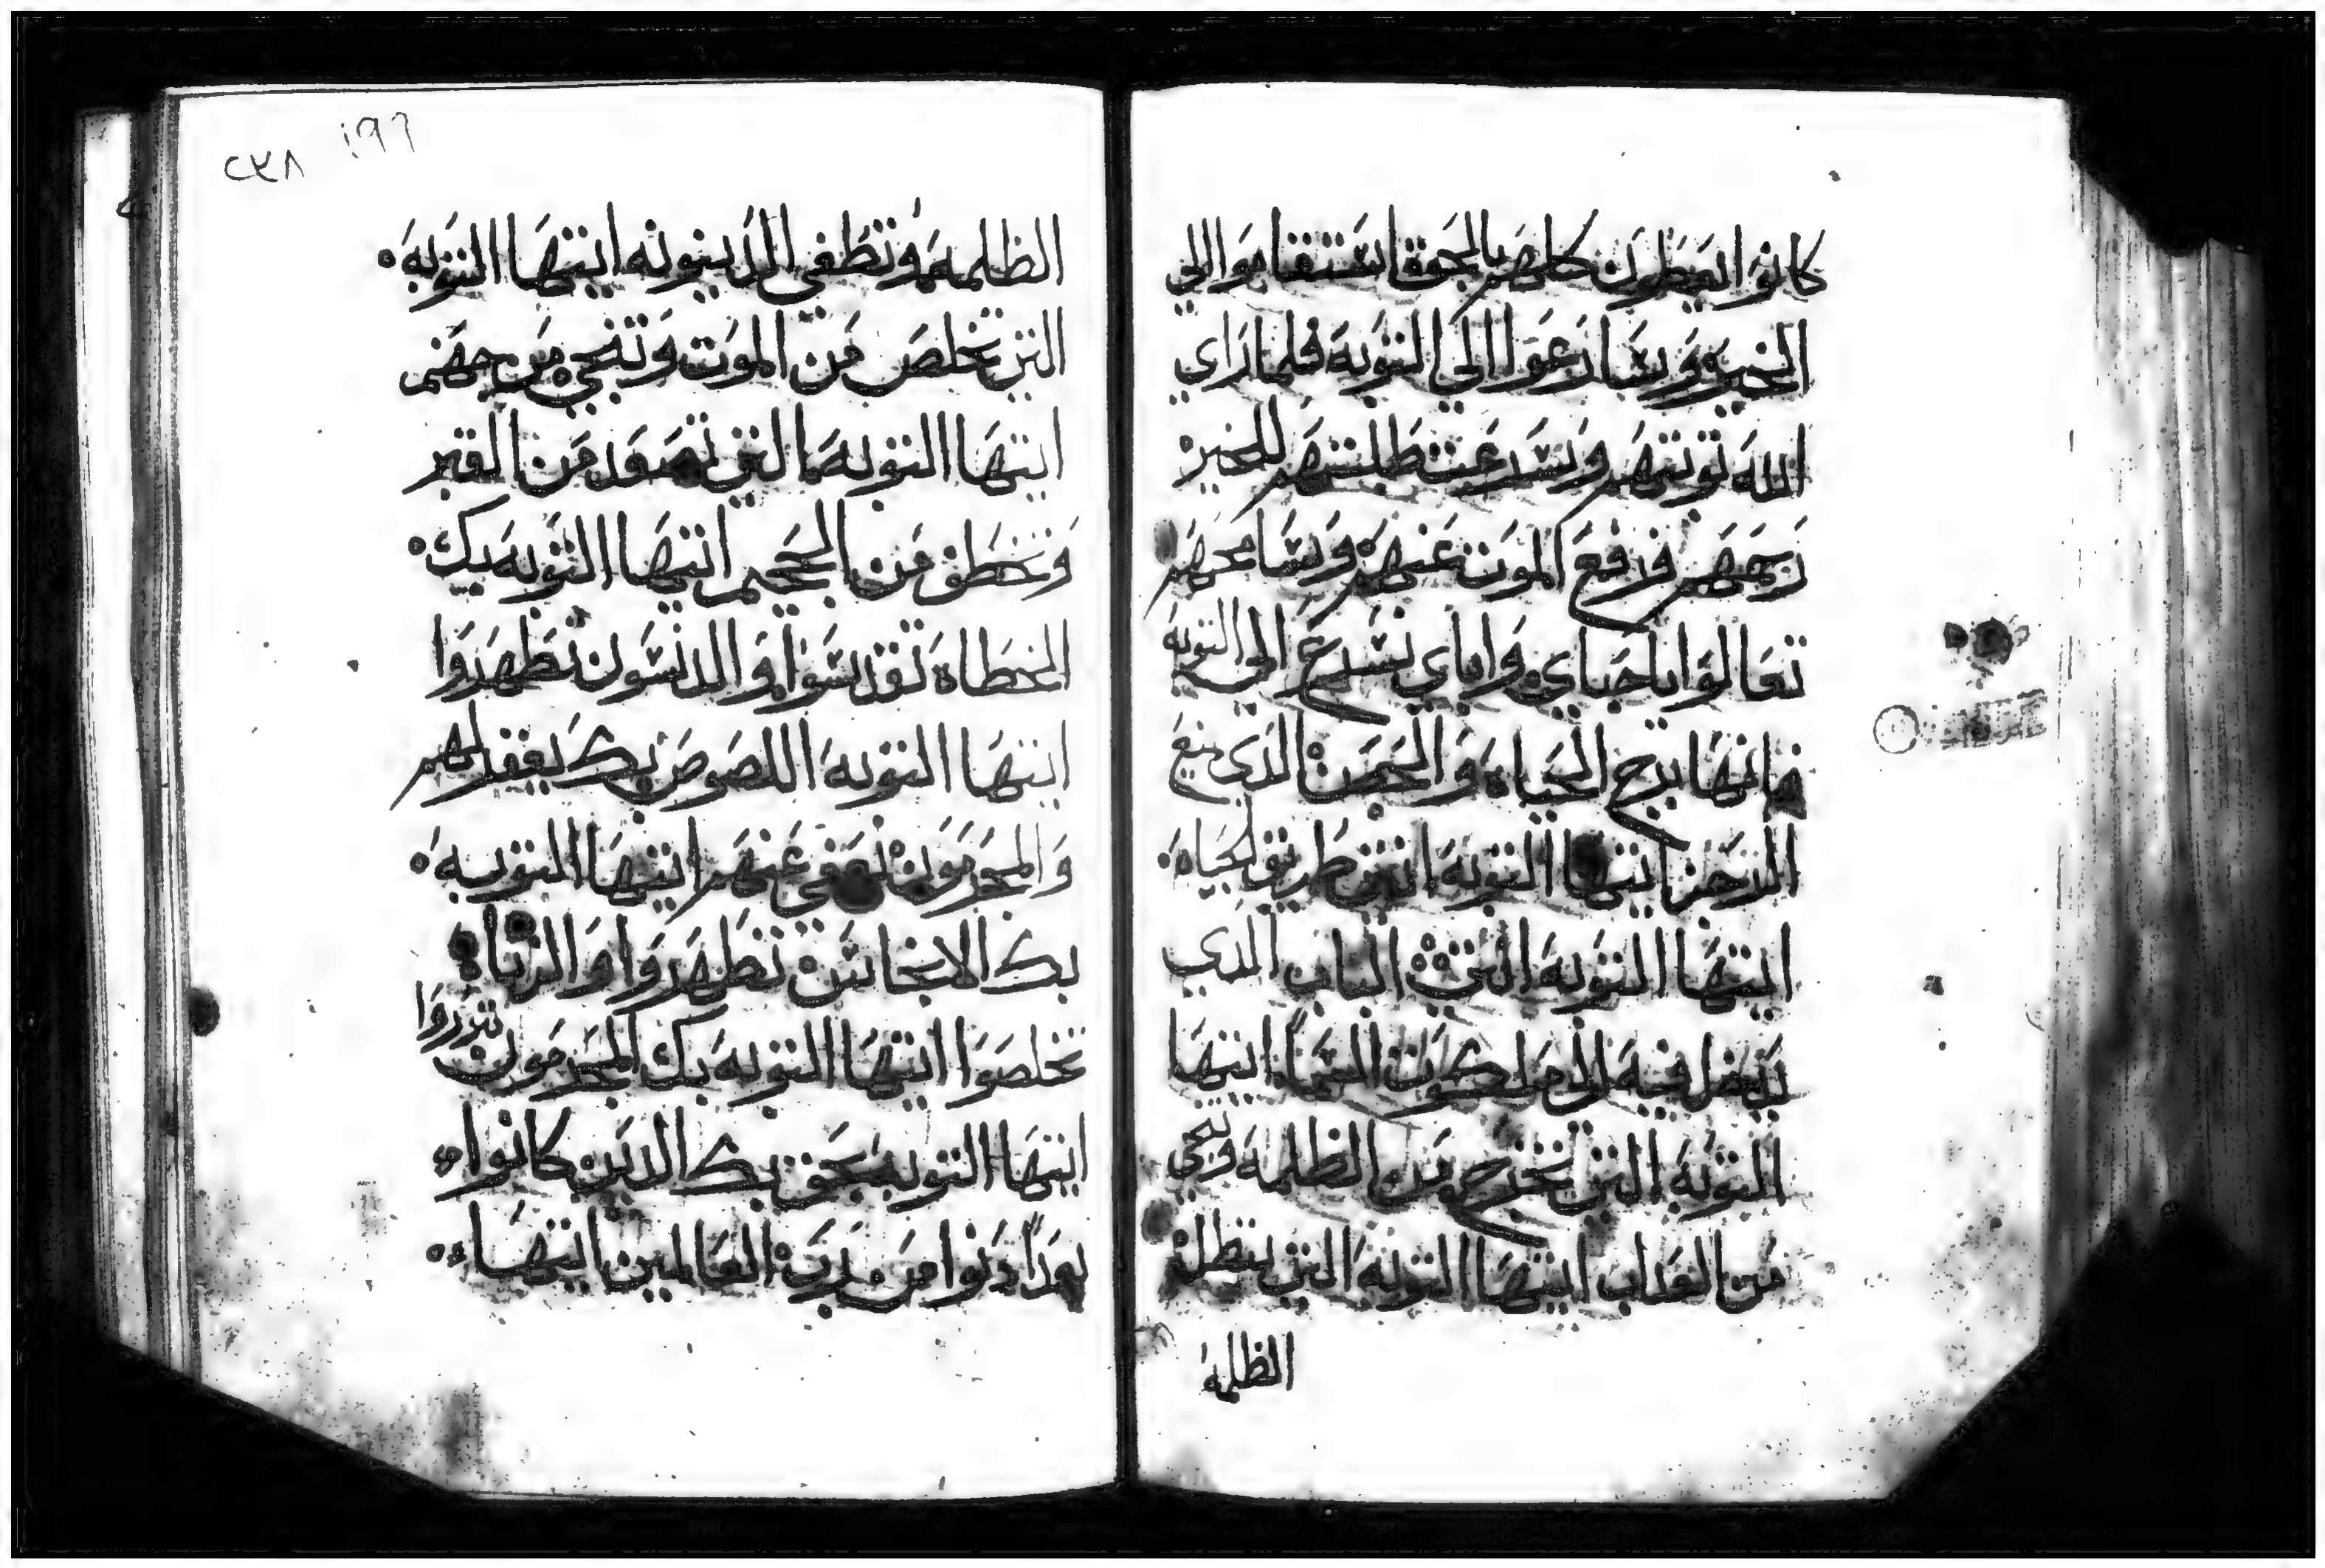 كانوا يعطون كلهم بالحق استقاموا الي
الخير وسارعوا الي التوبه فلما راي
الله توبتهم وسرعت طلبتهم للخير
رحمهم فرفع الموت عنهم وسامحهم
تعالوا يا احباي واباي نسرع الي التوبه
فانها برج الحياه والحصن الذي
ايتها التوبه انتي طريق الحياه
ايتها التوبه انتي الباب الذي
يدخل فيه الي ملكوت السما ايتها
التوبه التي تخرج من الظلمه وتنجي
من العذاب ايتها التوبه التي تبطل
الظلمه
١٩٦
٢٤٨
الظلمه وتطفي الدينونه ايتها التوبه
التي تخلص من الموت وتنجي من جهنم
ايتها التوبه التي تصعد من القبر
وتخطف من الجحيم ايتها التوبه بك
الخطاه تقدسوا والدنسون تطهروا
ايتها التوبه اللصوص بك يغفر لهم
والمجرمون يعفي عنهم ايتها التوبه
بك الانجاس تطهروا والزناه
تخلصوا ايتها التوبه بك المجرمون تبرروا
ايتها التوبه بحق بك الذين كانوا
بعدا دنوا من رب العالمين ايتها